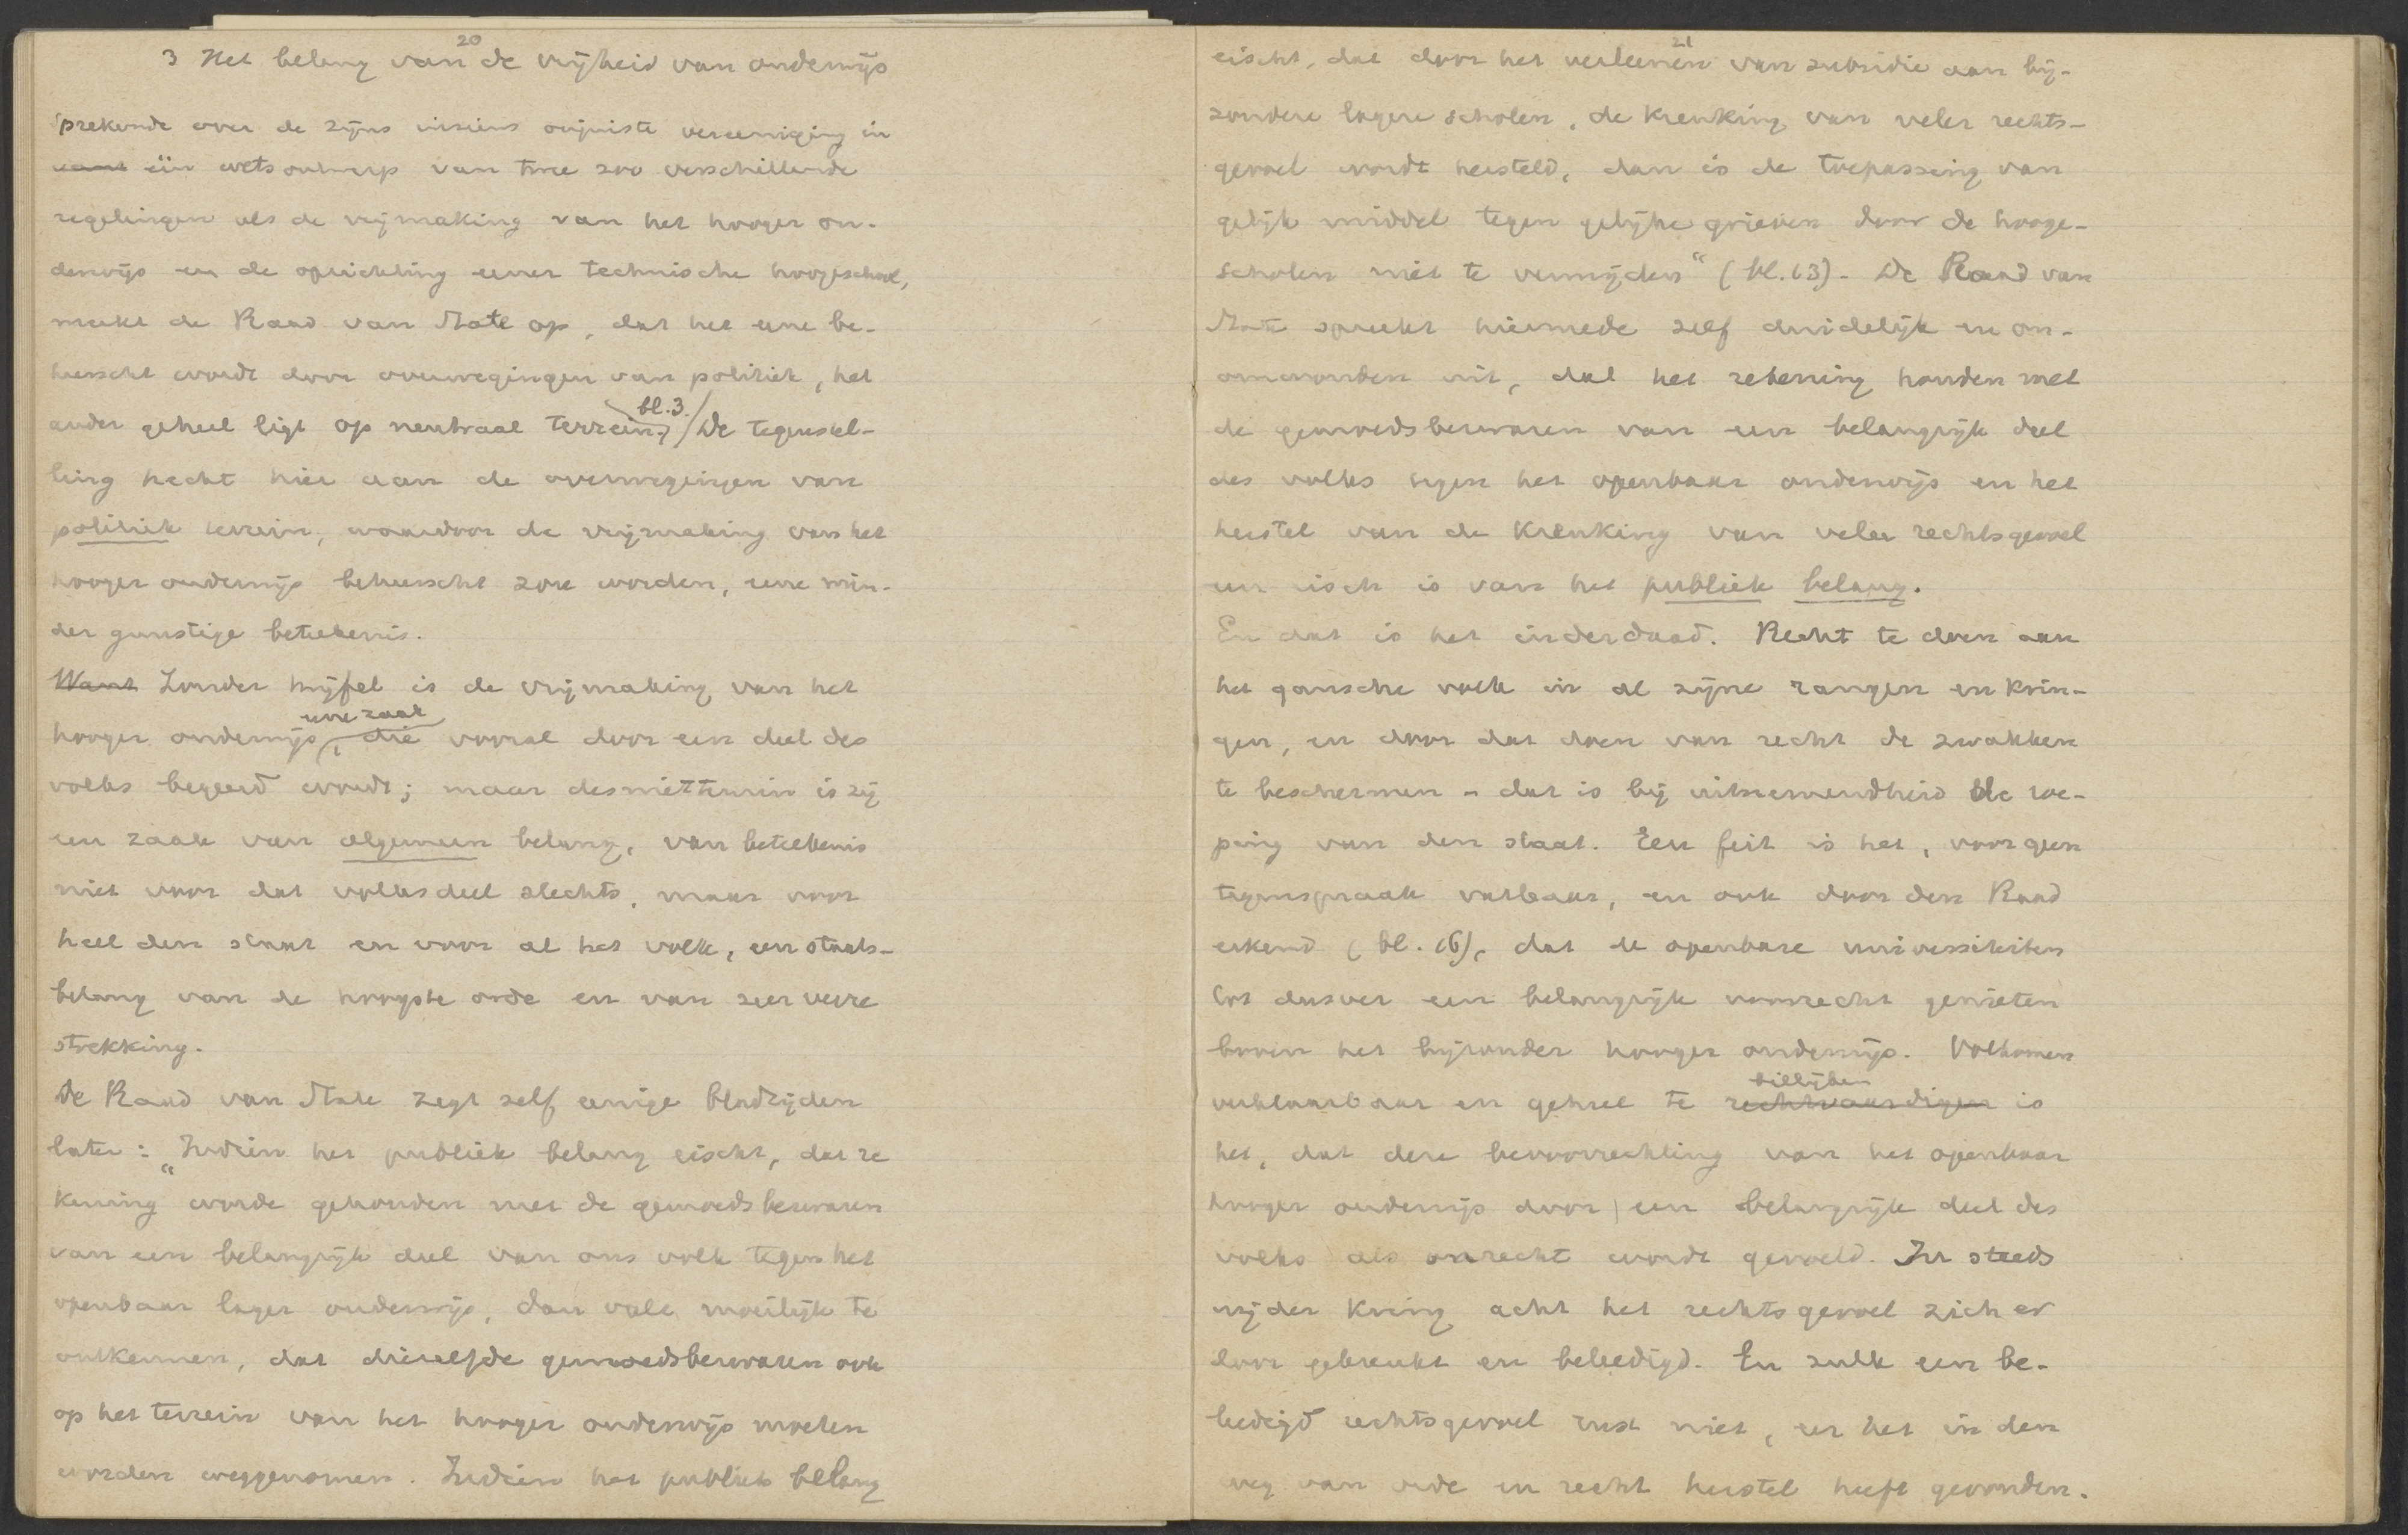 20
3 Het belang van de vrijheid van onderwijs
Sprekende over de zijns inziens onjuiste vereeniging in
want één wetsontwerp van twee zoo verschillende
regelingen als de vrijmaking van het hooger on-
derwijs en de oprichting eener technische hoogeschool,
merkt de Raad van State op, dat het eene be-
heerscht wordt door overwegingen van politiek, het
bl. 3.
ander geheel ligt op neutraal terrein. De tegenstel-
ling hecht hier aan de overwegingen van
politiek terrein, waardoor de vrijmaking van het
hooger onderwijs beheerscht zou worden, eene min-
der gunstige beteekenis.
Want Zonder twijfel is de vrijmaking van het
eene zaak
hooger onderwijs, die vooral door een deel des
volks begeerd wordt; maar desniettemin is zij
een zaak van algemeen belang, van beteekenis
niet voor dat volksdeel slechts, maar voor
heel den staat en voor al het volk, een staats-
belang van de hoogste orde en van zeer verre
strekking.
De Raad van State zegt zelf eenige bladzijden
later: „Indien het publiek belang eischt, dat re
kening worde gehouden met de gemoedsbezwaren
van een belangrijk deel van ons volk tegen het
openbaar lager onderwijs, dan valt moeilijk te
ontkennen, dat diezelfde gemoedsbezwaren ook
op het terrein van het hooger onderwijs moeten
worden weggenomen. Indien het publiek belang
21
eischt, dat door het verleenen van subsidie aan bij-
zondere lagere scholen, de krenking van veler rechts-
gevoel wordt hersteld, dan is de toepassing van
gelijk middel tegen gelijke grieven voor de hooge-
scholen niet te vermijden" (bl. 13). De Raad van
State spreekt hiermede zelf duidelijk en on-
omwonden uit, dat het rekening houden met
de gemoedsbezwaren van een belangrijk deel
des volks tegen het openbaar onderwijs en het
herstel van de krenking van veler rechtsgevoel
een eisch is van het publiek belang.
En dat is het inderdaad. Recht te doen aan
het gansche volk in al zijne rangen en krin-
gen, en door dat doen van recht de zwakken
te beschermen - dat is bij uitnemendheid de roe-
ping van den staat. Een feit is het, voor geen
tegenspraak vatbaar, en ook door den Raad
erkend (bl. 16), dat de openbare universiteiten
tot dusver een belangrijk voorrecht genieten
boven het bijzonder hooger onderwijs. Volkomen
billijken
verklaarbaar en geheel te rechtvaardigen is
het, dat deze bevoorrechting van het openbaar
hooger onderwijs door een belangrijk deel des
volks als onrecht wordt gevoeld. In steeds
wijder kring acht het rechtsgevoel zich er
door gekrenkt en beleedigd. En zulk een be-
leedigd rechtsgevoel rust niet, eer het in den
weg van orde en recht herstel heeft gevonden.